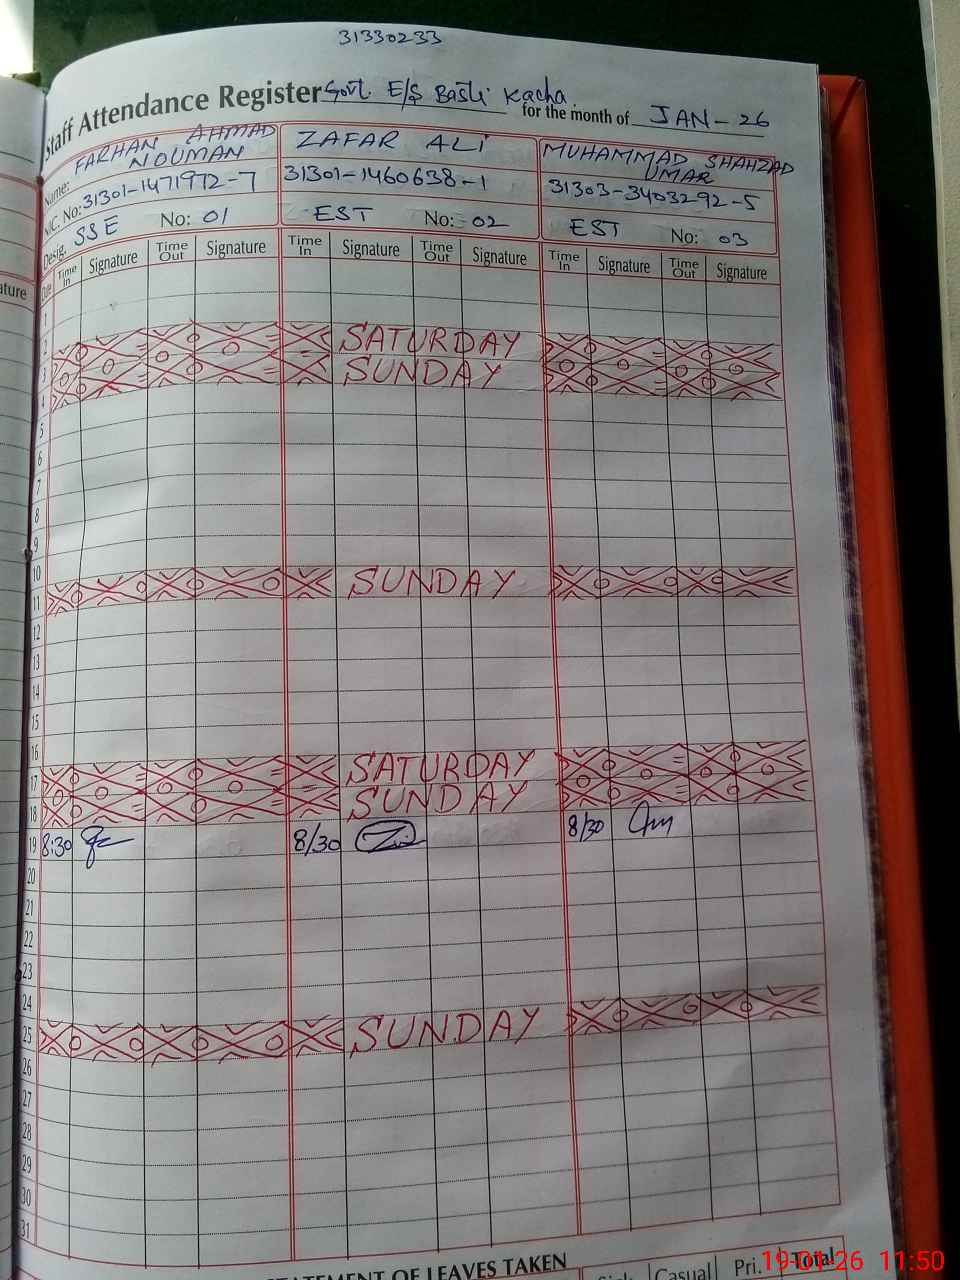 31330233
Staff Attendance Register Govt. E/S Basti Kacha. for the month of JAN-26
Name: FARHAN AHMAD NOUMAN ZAFAR ALI MUHAMMAD SHAHZAD UMAR
N.I.C. No: 31301-1471972-7 31301-1460638-1 31303-3403292-5
Desig. SSE No: 01 EST No: 02 EST No: 03
Date Time In Signature Time Out Signature Time In Signature Time Out Signature Time In Signature Time Out Signature
ature
1
2
SATURDAY
3
SUNDAY
4
5
6
7
8
9
10
SUNDAY
11
12
13
14
15
16
17 SATURDAY
18 SUNDAY
19 8:30 8/30 8/30
20
21
22
23
24
25 SUNDAY
26
27
28
29
30
31
STATEMENT OF LEAVES TAKEN Sick Casual Pri. Total
19-01-26 11:50